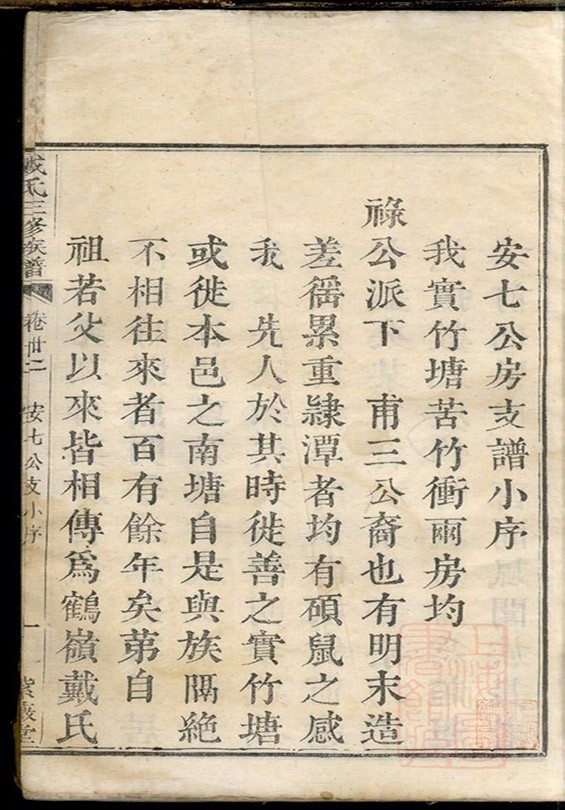 安七公房支譜小序
我實竹塘苦竹衝兩房均
祿公派下 甫三公裔也有明末造
差徭累重隷潭者均有碩鼠之感
我 先人於其時徙善之實竹塘
或徙本邑之南塘自是與族隔絶
不相往來者百有餘年矣苐自
祖若父以來皆相傳爲鶴嶺戴氏
戴氏三修族譜 卷卅二 安七公支小序 一 紫薇堂